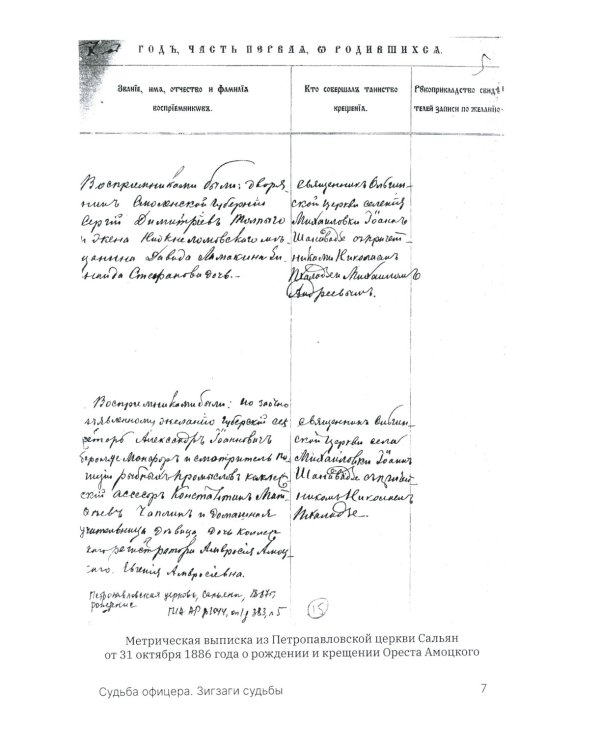 ГОДЪ, ЧАСТЬ ПЕРВАѦ, Ѡ РОДИВШИХСѦ.
5
Званіе, имѧ, отчество и фамиліѧ
воспріемниковъ.
Кто совершалъ таинство
крещеніѧ.
Рꙋкоприкладство свидѣ
телей записи по желанію
Воспріемниками были: дворя
нинъ Смоленской Губерніи
Сергій Димитріевъ
и Жена Нижнеломовскаго мѣ
щанина Давида Ламакина Зи
наида Стефанова дочь.
Священникъ Ольгин
ской Церкви селенія
Михайловки Іоаннъ
Шанавадзе съ причет
никами Николаемъ
Пхаладзе и Михаиломъ
Андреевымъ.
Воспріемниками были: по заочно
изъявленному желанію Губернскій сек
ретарь Александръ Іоанновичъ
и смотритель
рыбныхъ промысловъ коллеж
скій ассесоръ Константинъ Мат
ѳеевъ Чаплинъ и домашняя
учительница дѣвица дочь Коллеж
скаго регистратора Амвросія Амоц
каго. Евгенія Амвросіевна.
Священникъ Ольгин
ской Церкви села
Михайловки Іоаннъ
Шанавадзе съ причет
никомъ Николаемъ
Пхаладзе.
Петропавловская церковь, Сальяны,
рождение
ГИА АР ф1044, оп1 д 383, л 5
15
Метрическая выписка из Петропавловской церкви Сальян
от 31 октября 1886 года о рождении и крещении Ореста Амоцкого
Судьба офицера. Зигзаги судьбы
7